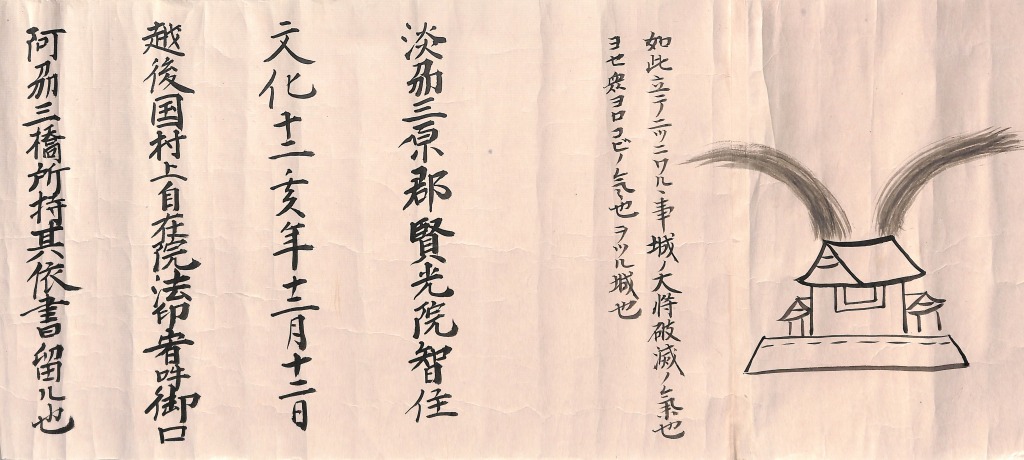 如此立テ二ツニワルヽ事城ノ大将破滅ノ気也
ヨセ衆ヨロコビノ気也ヲツル城也
淡州三原郡賢光院智住
文化十二亥年十二月十二日
越後国村上自在院法印者吽御口
阿州三橋所持其依書留ル也